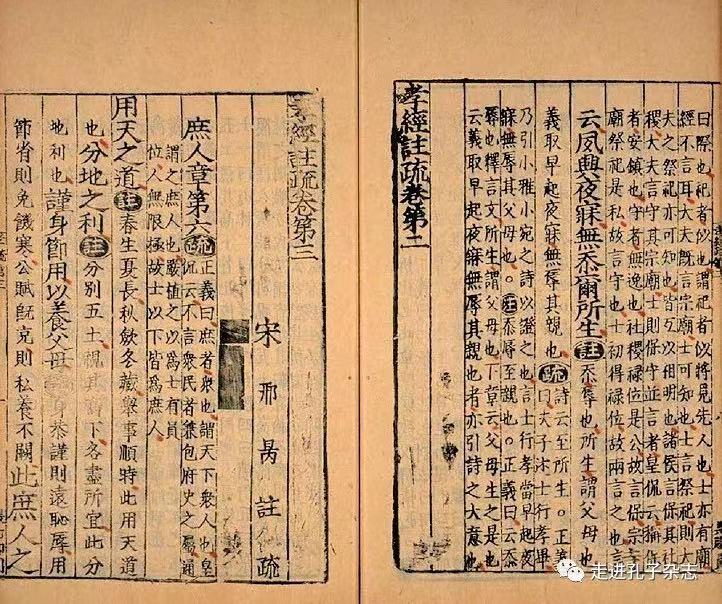 曰際也祀者似也謂祀者似將見先人也士亦有廟
經不言耳大夫既言宗廟士可知也士言祭祀則大
夫之祭祀亦可知也皆互以相明也諸侯言保其社
稷大夫言守其宗廟士則保守並言者皇侃云稱保
者安鎮也守者無逸也社稷祿位是公故言保宗
廟祭祀是私故言守也士初得祿位故兩言之也
云夙興夜寐無忝爾所生註忝辱也所生謂父母也
義取早起夜寐無辱其親也疏詩云至所生。正義
曰夫子述士行孝畢
乃引小雅小宛之詩以證之也言士行孝當早起夜
寐無辱其父母也。註忝辱至親也。正義曰云忝
辱也釋言文所生謂父母也下章云父母生之是也
云義取早起夜寐無辱其親也者亦引詩之大意也
孝經註疏卷第二
孝經註疏卷第三
宋 邢昺 註疏
庶人章第六疏正義曰庶者衆也謂天下衆人也皇
侃云不言衆民者兼包府史之屬通
謂之庶人也嚴植之以為士有員
位人無限極故士以下皆為庶人
用天之道註春生夏長秋斂冬藏舉事順時此用天道
也分地之利註分別五土視其高下各盡所宜此分
地利也謹身節用以養父母身恭謹則遠恥辱用
節省則免饑寒公賦既充則私養不闕此庶人之
走进孔子杂志